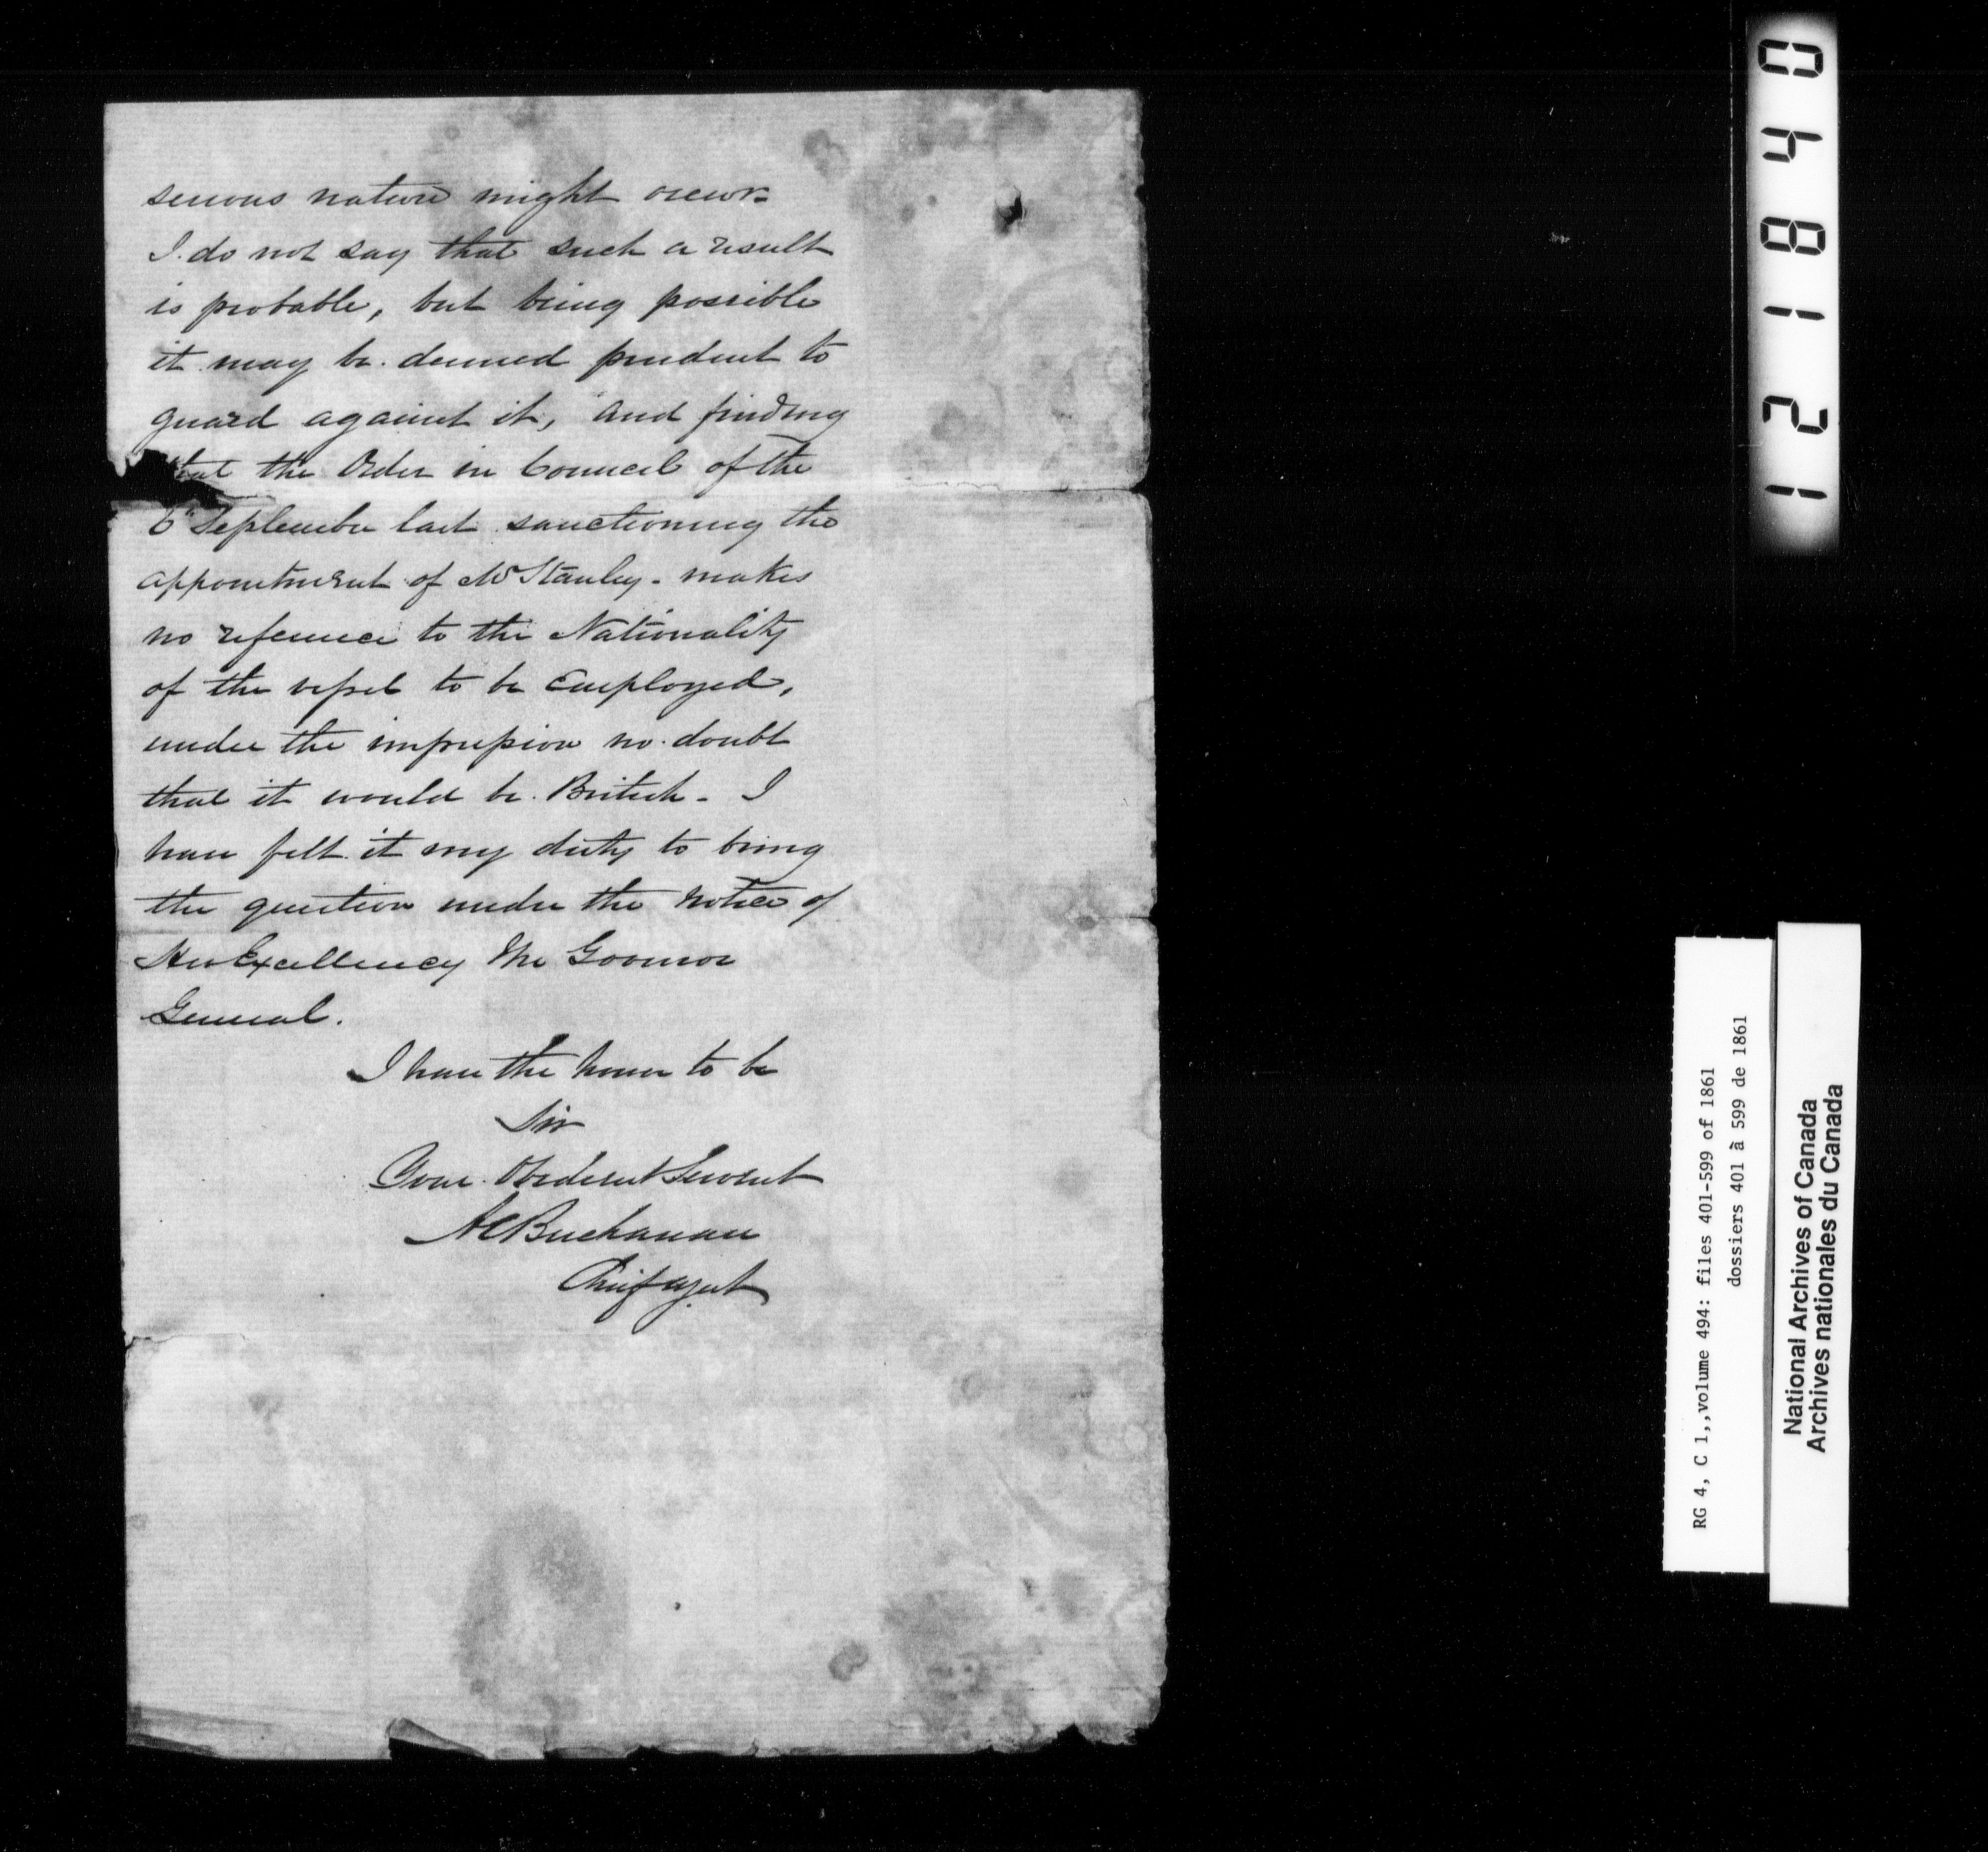 serious nature might occur-
I do not say that such a result
is probable, but being possible
it may be deemed prudent to
guard against it, and finding
that the Order in Council of the
6th September last sanctioning the
appointment of Mr Stanley - makes
no reference to the Nationality
of the vessel to be employed,
under the impression no doubt
that it would be British - I
have felt it my duty to bring
the question under the notice of
His Excellency the Governor
General.
I have the honor to be
Sir
Your Obedient Servant
A C Buchanan
Chief Agent
121840
RG 4, C 1,,volume 494: files 401-599 of 1861
dossiers 401 à 599 de 1861
National Archives of Canada
Archives nationales du Canada